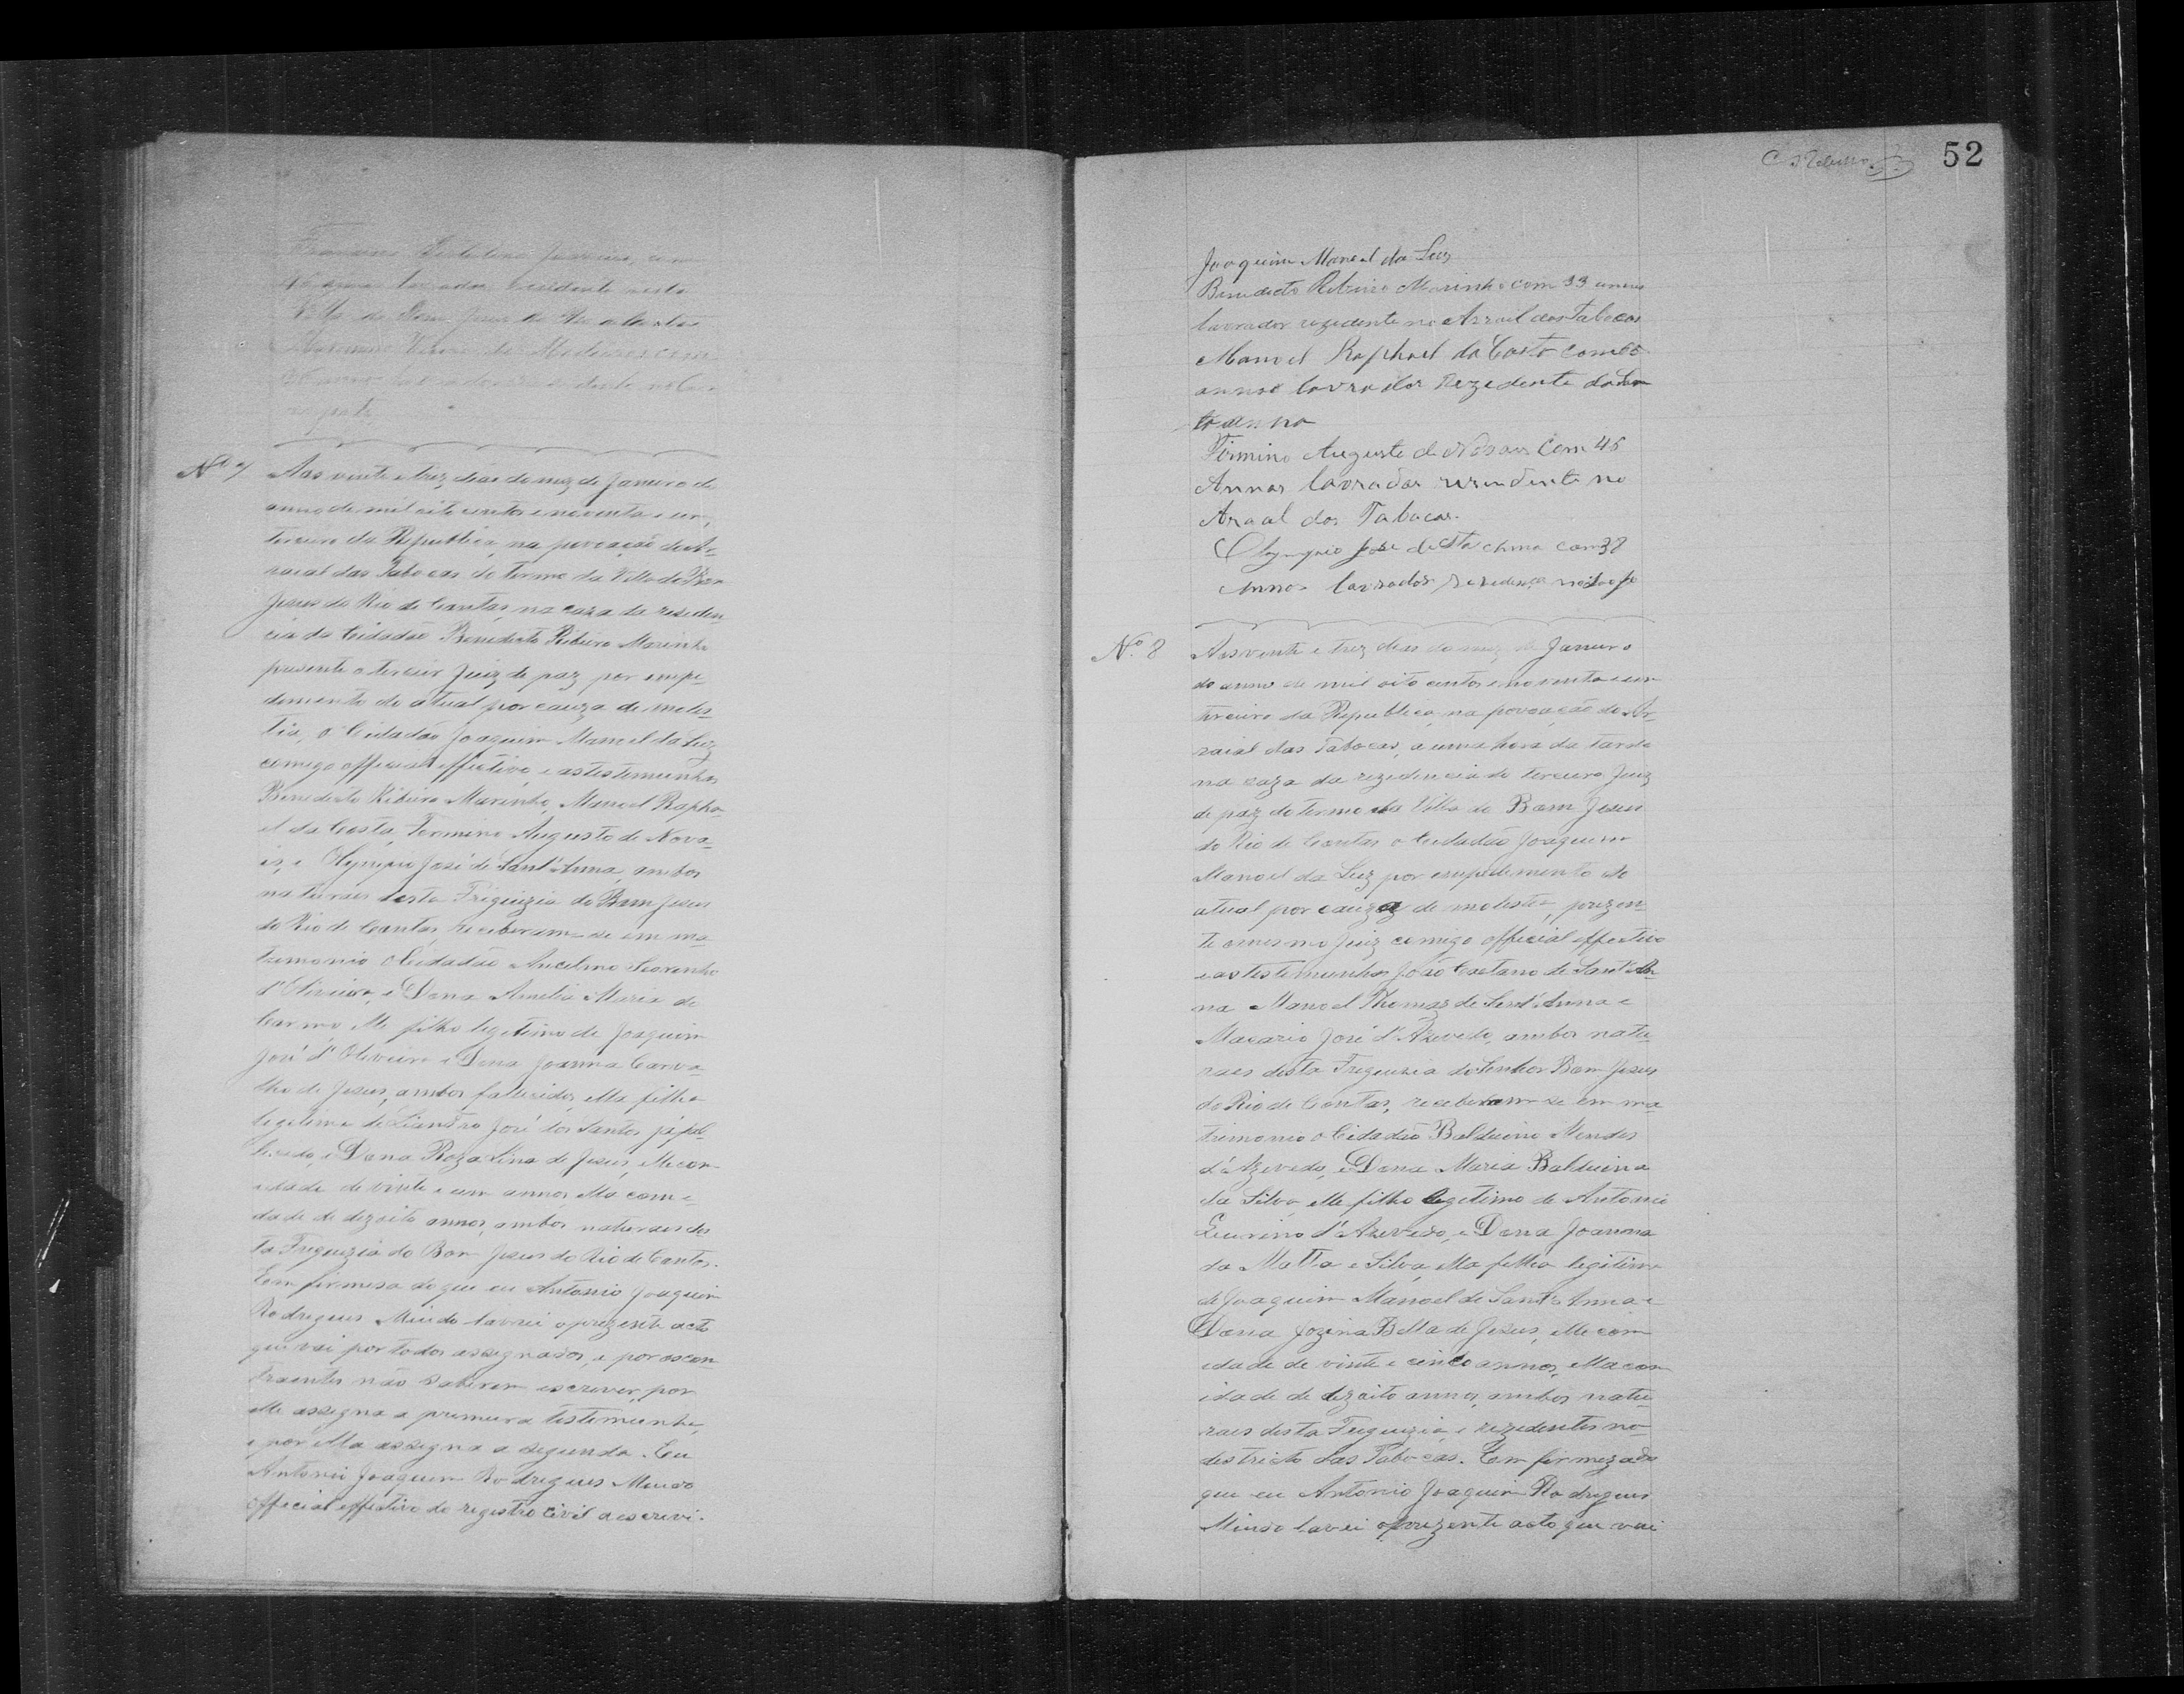 com
residente nesta
Villa do Bom Jesus
annos lavrador residente no
Nº 7
Aos vinte e trez dias do mez de Janeiro do
anno de mil oito centos e noventa e um,
terceiro da Republica, na povoação do Ar-
raial das Tabocas do termo da Villa do Bom
Jesus do Rio de Contas, na caza da residen-
cia do Cidadão Benedicto Ribeiro Marinho
presente o terceiro Juiz de paz por impe-
dimento do atual por cauza de moles-
tia, o Cidadão Joaquim Manoel da Luz
comigo official effectivo, e as testemunhas
Benedicto Ribeiro Marinho, Manoel Rapha-
el da Costa, Fermino Augusto de Nova-
es, e Olympio José de Sant'Anna, ambos
naturaes desta Freguizia do Bom Jesus
do Rio de Contas, receberam-se em ma-
trimonio o Cidadão Ancelmo
d'Oliveira, e Dona Amelia Maria do
Carmo, elle filho legitimo de Joaquim
José d'Oliveira e Dona Joanna Carva-
lho de Jesus, ambos fallecidos, ella filha
legitima de Liandro José dos Santos já fal-
lecido, e Dona Roza Lina de Jesus, elle com
idade de vinte e um annos, ella com i-
dade de dezoito annos, ambos naturaes des-
ta Freguezia do Bom Jesus do Rio de Contas.
Em firmesa do que eu Antonio Joaquim
Rodrigues Mindo lavrei o prezente acto
que vai por todos assegnados, e por os con-
traentes não saberem escrever, por
elle assegna a primeira testemunha,
e por ella assegna a segunda. Eu
Antonio Joaquim Rodrigues Mindo
official effectivo do registro civil a escrevi.
52
Joaquim Manoel da Luz
Benedicto Ribeiro Marinho com 33 annos
lavrador rezedente no Arraial das Tabocas
Manoel Raphael da Costa com
annos lavrador Rezedente
Firmino Augusto de Novaes Com 45
Annos lavrador rezendente no
Araal dos Tabacas.
Olympio José de Sta Anna com 38
Annos lavrador
Nº. 8
Aos vinte e trez dias do mez de Janeiro
do anno de mil oito centos e noventa e um
terceiro da Republica, na povoação do Ar-
raial das Tabocas, a uma hora da tarde
na caza da rezidencia do terceiro Juiz
de paz do termo da Villa do Bom Jesus
do Rio de Contas o Cidadão Joaquim
Manoel da Luz por empedimento do
atual por cauza de molestia, prezen-
te o mesmo Juiz comigo official effectivo
e as testemunhas João Caetano de Sant'An-
na Manoel Thomaz de Sant'Anna e
Macario José d'Azevedo, ambos natu-
raes desta Freguizia do Senhor Bom Jesus
do Rio de Contas, receberam-se em ma-
trimonio o Cidadão Balduino Mendes
d'Azevedo, e Dona Maria Balduina
da Silva, elle filho legetimo de Antonio
d'Azevedo, e Dona Joanna
da Matta e Silva, ella filha legitima
de Joaquim Manoel de Sant'Anna e
Dona Jozina Bella de Jesus, elle com
idade de vinte e cinco annos, ella com
idade de dezoito annos, ambos natu-
raes desta Freguizia, e rezedentes no
destricto das Tabocas. Em firmeza do
que eu Antonio Joaquim Rodrigues
Mindo lavrei o prezente acto que vai